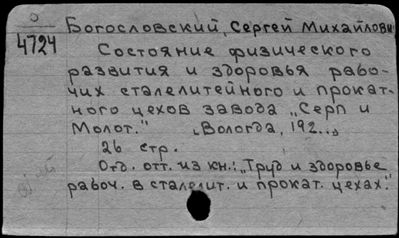 О
4724
Богословский, Сергей Михайлович
Состояние физического
развития и здоровья рабо-
чих сталелитейного и прокат-
ного цехов завода „Серп и
Молот."  [Вологда, 192..]
26 стр.
Отд. отт. из кн.: „Труд и здоровье
рабоч. в сталелит. и прокат. цехах."